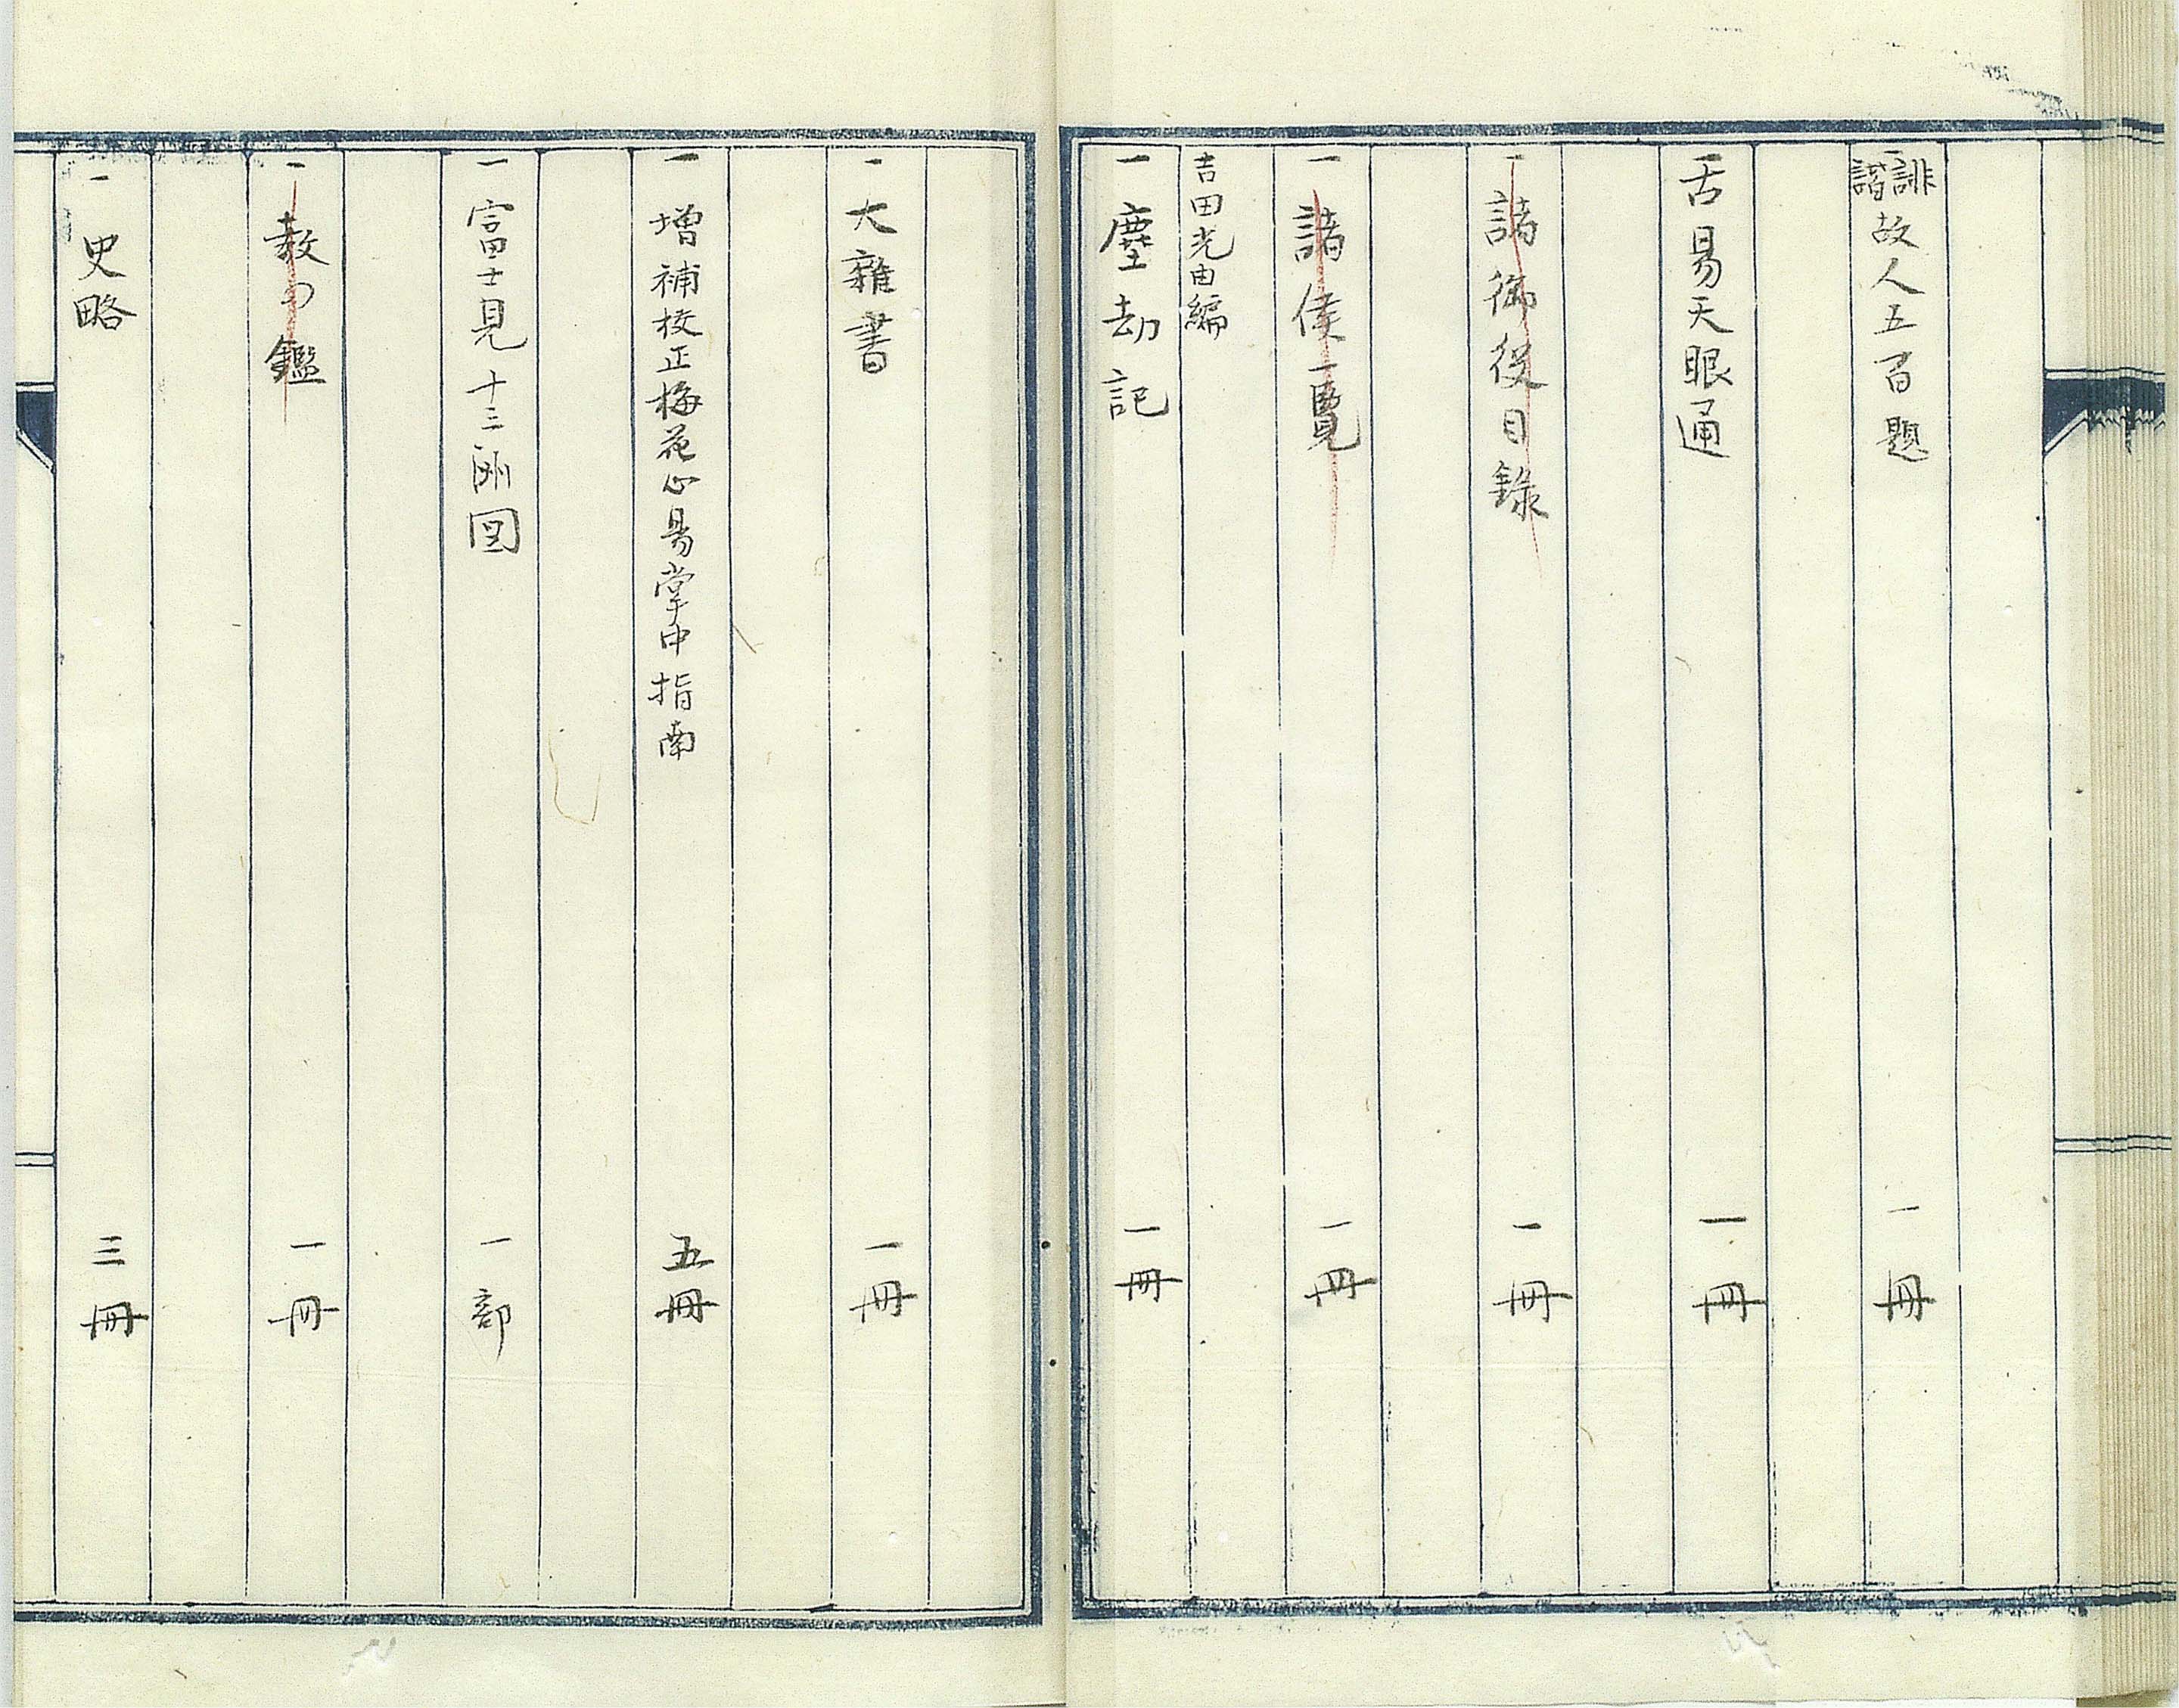 一 誹諧 故人五百題 一冊
一 古易天眼通 一冊
一 諸御役目録 一冊
一 諸侯一覧 一冊
吉田光由編
一 塵劫記 一冊
一 大雜書 一冊
一 増補校正梅花心易掌中指南 五冊
一 富士見十三洲図 一部
一 教の鑑 一冊
一 史略 三冊